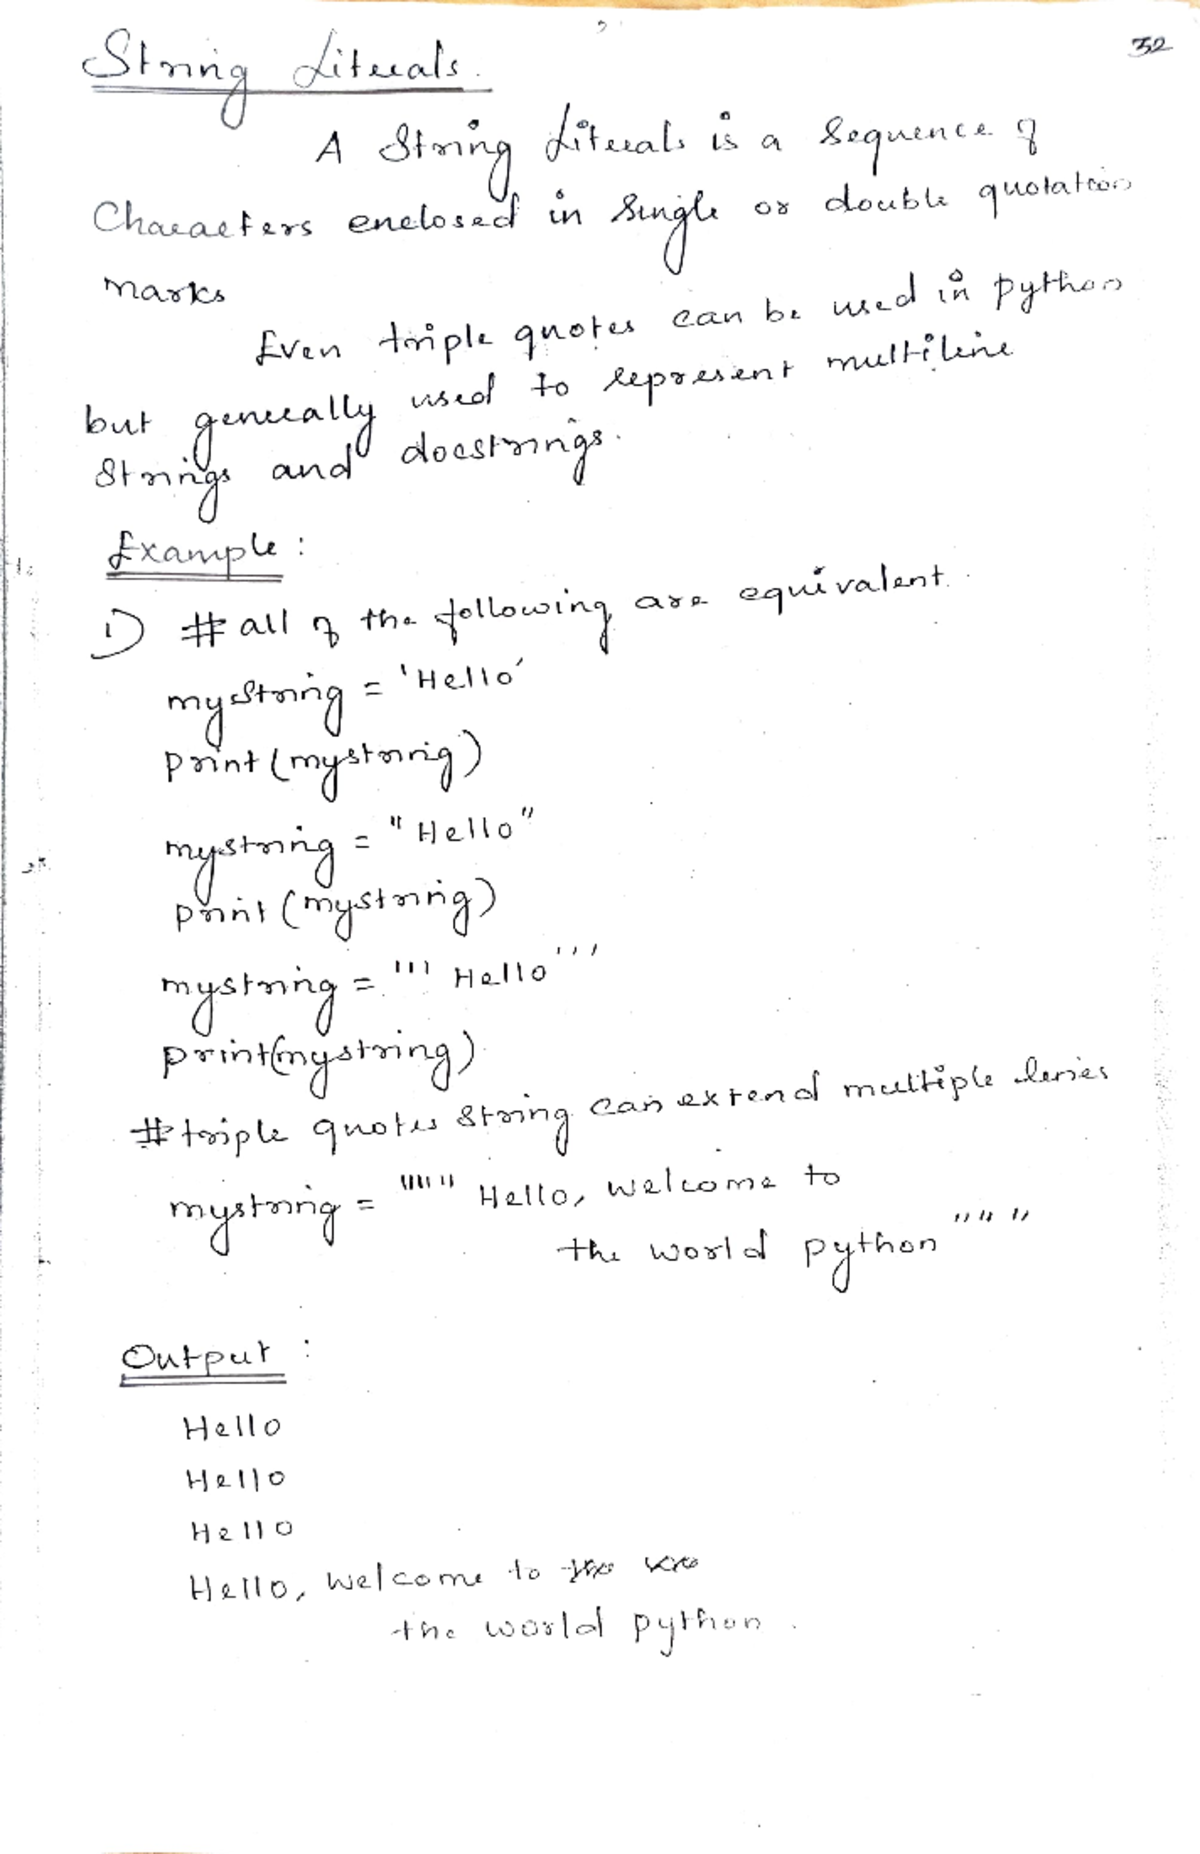 32
String Literals.
A String Literals is a Sequence of
Characters enclosed in Single or double quotation
marks
Even triple quotes can be used in python
but generally used to represent multiline
Strings and docstrings.
Example :
1) # all of the following are equivalent.
mystring = 'Hello'
print (mystring)
mystring = "Hello"
print (mystring)
mystring = ''' Hello '''
print(mystring)
# triple quotes string can extend multiple lines
mystring = """ Hello, welcome to
the world python """
Output :
Hello
Hello
Hello
Hello, welcome to
the world python.